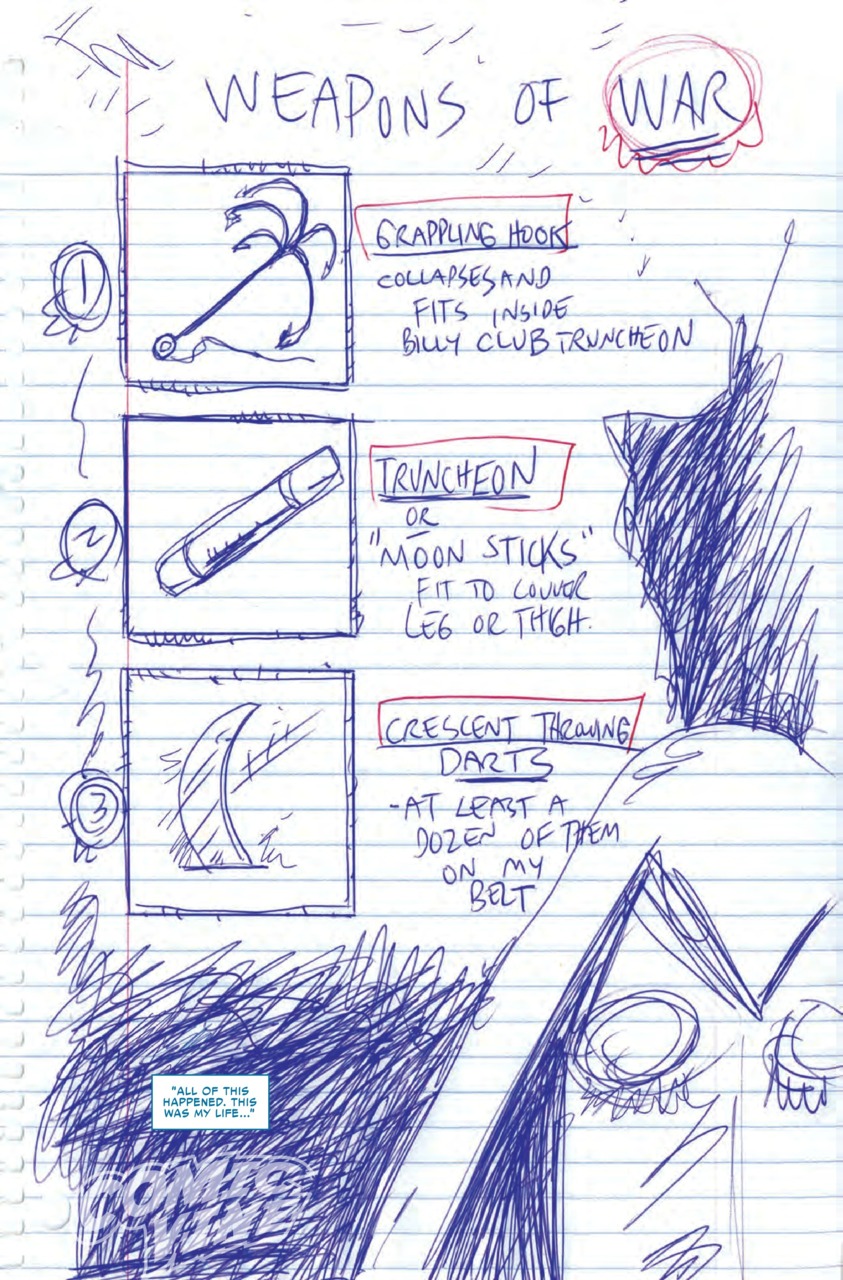 WEAPONS OF WAR
1
GRAPPLING HOOK
COLLAPSES AND
FITS INSIDE
BILLY CLUB TRUNCHEON
2
TRUNCHEON
OR
"MOON STICKS"
FIT TO COUVER
LEG OR THIGH.
3
CRESCENT THROWING
DARTS
-AT LEAST A
DOZEN OF THEM
ON MY
BELT
"ALL OF THIS
HAPPENED. THIS
WAS MY LIFE..."
COMIC
VINE